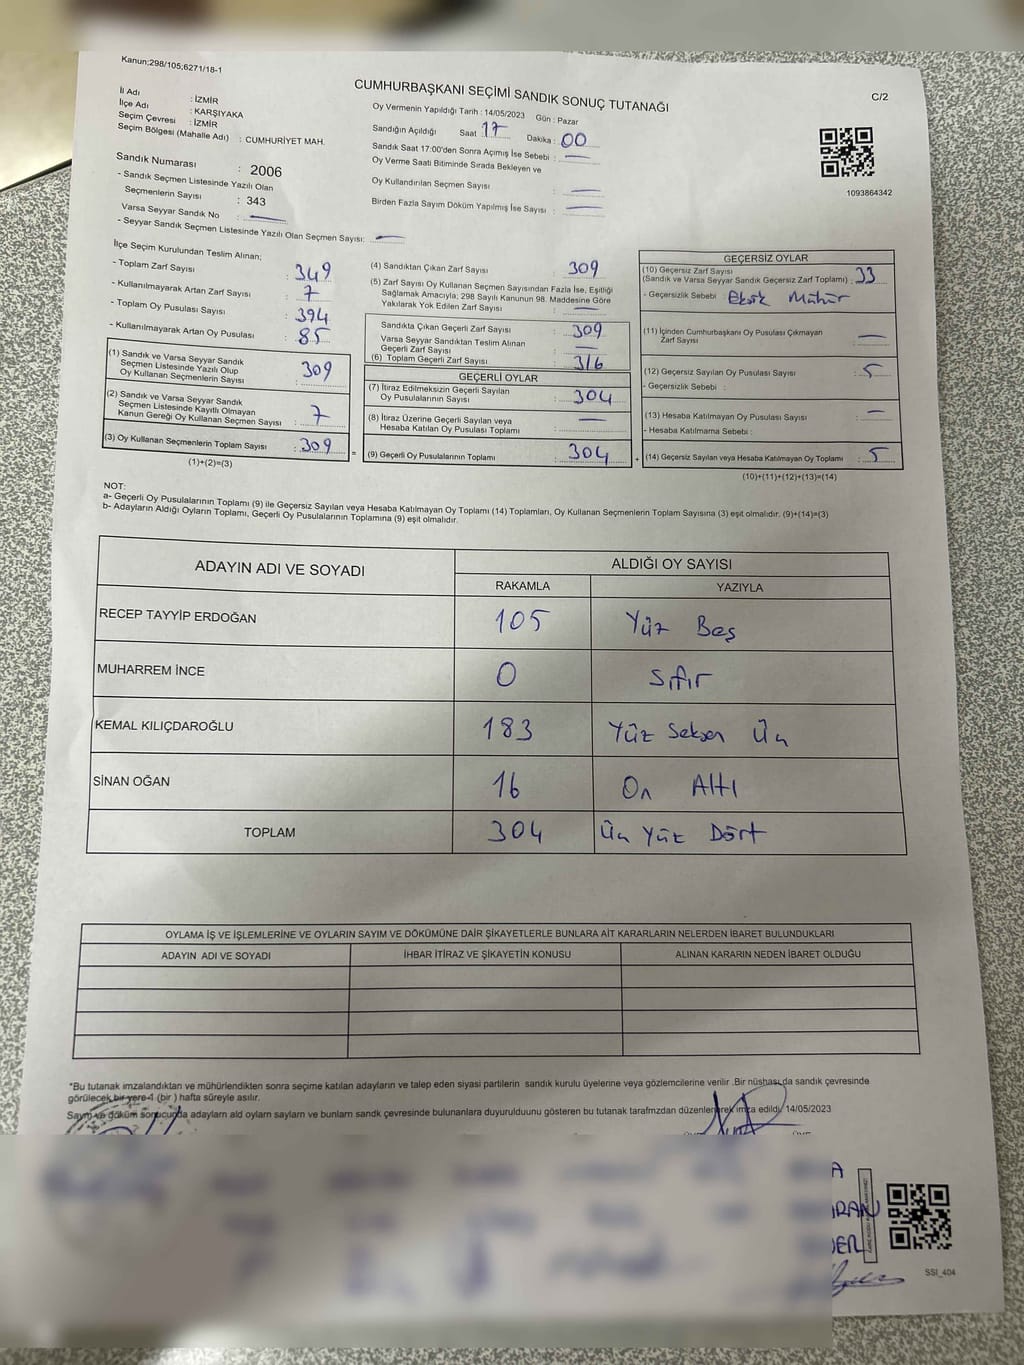 Kanun;298/105;6271/18-1
CUMHURBAŞKANI SEÇİMİ SANDIK SONUÇ TUTANAĞI
C/2
İl Adı : İZMİR
İlçe Adı : KARŞIYAKA
Seçim Çevresi : İZMİR
Seçim Bölgesi (Mahalle Adı) : CUMHURİYET MAH.
Sandık Numarası : 2006
- Sandık Seçmen Listesinde Yazılı Olan
Seçmenlerin Sayısı : 343
Varsa Seyyar Sandık No : —
- Seyyar Sandık Seçmen Listesinde Yazılı Olan Seçmen Sayısı: —
Oy Vermenin Yapıldığı Tarih : 14/05/2023 Gün : Pazar
Sandığın Açıldığı Saat : 17 Dakika : 00
Sandık Saat 17:00'den Sonra Açımış İse Sebebi : —
Oy Verme Saati Bitiminde Sırada Bekleyen ve
Oy Kullandırılan Seçmen Sayısı : —
Birden Fazla Sayım Döküm Yapılmış İse Sayısı : —
1093864342
İlçe Seçim Kurulundan Teslim Alınan;
- Toplam Zarf Sayısı : 349
- Kullanılmayarak Artan Zarf Sayısı : 7
- Toplam Oy Pusulası Sayısı : 394
- Kullanılmayarak Artan Oy Pusulası : 85
(1) Sandık ve Varsa Seyyar Sandık
Seçmen Listesinde Yazılı Olup
Oy Kullanan Seçmenlerin Sayısı : 309
(2) Sandık ve Varsa Seyyar Sandık
Seçmen Listesinde Kayıtlı Olmayan
Kanun Gereği Oy Kullanan Seçmen Sayısı : 7
(3) Oy Kullanan Seçmenlerin Toplam Sayısı : 309
(1)+(2)=(3)
(4) Sandıktan Çıkan Zarf Sayısı : 309
(5) Zarf Sayısı Oy Kullanan Seçmen Sayısından Fazla İse, Eşitliği
Sağlamak Amacıyla; 298 Sayılı Kanunun 98. Maddesine Göre
Yakılarak Yok Edilen Zarf Sayısı : —
Sandıkta Çıkan Geçerli Zarf Sayısı : 309
Varsa Seyyar Sandıktan Teslim Alınan
Geçerli Zarf Sayısı : —
(6) Toplam Geçerli Zarf Sayısı : 316
GEÇERLİ OYLAR
(7) İtiraz Edilmeksizin Geçerli Sayılan
Oy Pusulalarının Sayısı : 304
(8) İtiraz Üzerine Geçerli Sayılan veya
Hesaba Katılan Oy Pusulası Toplamı : —
= (9) Geçerli Oy Pusulalarının Toplamı : 304 +
GEÇERSİZ OYLAR
(10) Geçersiz Zarf Sayısı
(Sandık ve Varsa Seyyar Sandık Geçersiz Zarf Toplamı) : 33
- Geçersizlik Sebebi : Eksik Mühür
(11) İçinden Cumhurbaşkanı Oy Pusulası Çıkmayan
Zarf Sayısı : —
(12) Geçersiz Sayılan Oy Pusulası Sayısı : 5
- Geçersizlik Sebebi :
(13) Hesaba Katılmayan Oy Pusulası Sayısı : —
- Hesaba Katılmama Sebebi :
(14) Geçersiz Sayılan veya Hesaba Katılmayan Oy Toplamı : 5
(10)+(11)+(12)+(13)=(14)
NOT:
a- Geçerli Oy Pusulalarının Toplamı (9) ile Geçersiz Sayılan veya Hesaba Katılmayan Oy Toplamı (14) Toplamları, Oy Kullanan Seçmenlerin Toplam Sayısına (3) eşit olmalıdır. (9)+(14)=(3)
b- Adayların Aldığı Oyların Toplamı, Geçerli Oy Pusulalarının Toplamına (9) eşit olmalıdır.
ADAYIN ADI VE SOYADI ALDIĞI OY SAYISI
RAKAMLA YAZIYLA
RECEP TAYYİP ERDOĞAN 105 Yüz Beş
MUHARREM İNCE 0 Sıfır
KEMAL KILIÇDAROĞLU 183 Yüz Seksen Üç
SİNAN OĞAN 16 On Altı
TOPLAM 304 Üç Yüz Dört
OYLAMA İŞ VE İŞLEMLERİNE VE OYLARIN SAYIM VE DÖKÜMÜNE DAİR ŞİKAYETLERLE BUNLARA AİT KARARLARIN NELERDEN İBARET BULUNDUKLARI
ADAYIN ADI VE SOYADI İHBAR İTİRAZ VE ŞİKAYETİN KONUSU ALINAN KARARIN NEDEN İBARET OLDUĞU
*Bu tutanak imzalandıktan ve mühürlendikten sonra seçime katılan adayların ve talep eden siyasi partilerin sandık kurulu üyelerine veya gözlemcilerine verilir .Bir nüshası da sandık çevresinde
görülecek bir yere 1 (bir ) hafta süreyle asılır.
Sayım ve döküm sonucunda adayların ald oyların sayların ve bunların sandk çevresinde bulunanlara duyurulduunu gösteren bu tutanak tarafmzdan düzenlenerek imza edildi. 14/05/2023
SSI_404